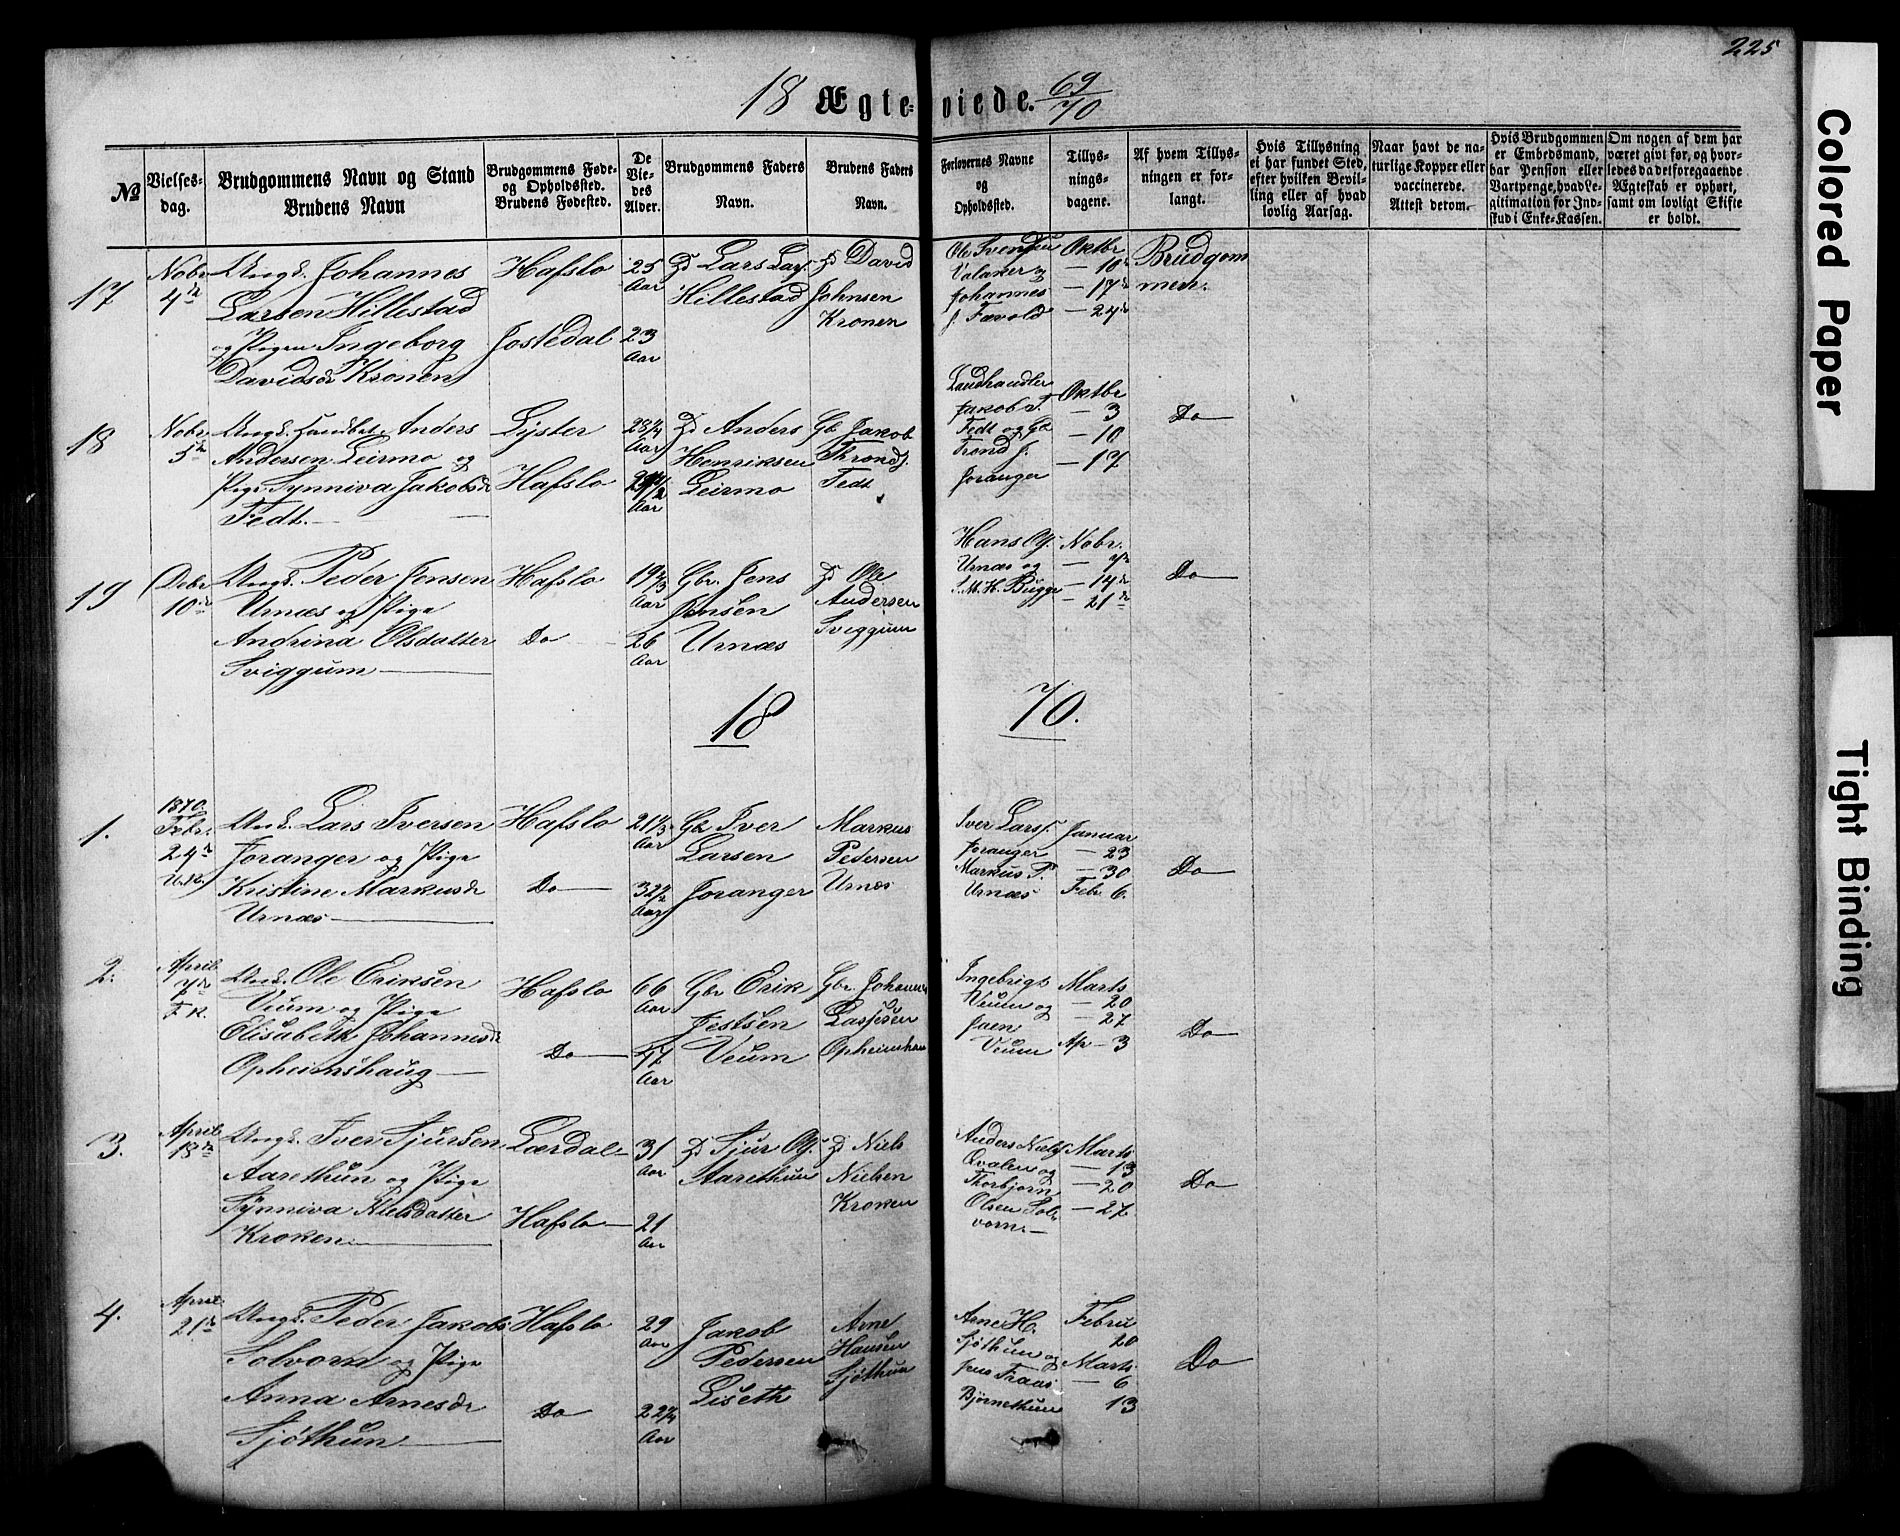 225
18 Ægteviede. 69/70
No
Vielses-
dag.
Brudgommens Navn og Stand
Brudens Navn
Brudgommens Føde-
og Opholdssted.
Brudens Fødested.
De
Vie-
des
Alder.
Brudgommens Faders
Navn.
Brudens Faders
Navn.
Forlovernes Navne
og
Opholdssted.
Tillys-
nings-
dagene.
Af hvem Tillys-
ningen er for-
langt.
Hvis Tillysning
ei har fundet Sted,
efter hvilken Bevil-
ling eller af hvad
lovlig Aarsag.
Naar havt de na-
turlige Kopper eller
vaccinerede.
Attest derom.
Hvis Brudgommen
er Embedsmand,
har Pension eller
Vartpenge, hvad Le-
gitimation for Ind-
skud i Enke-Kassen.
Om nogen af dem har
været givt før, og hvor-
ledes da det foregaaende
Ægteskab er ophørt,
samt om lovligt Skifte
er holdt.
17
Nobr
4de
Ungk. Johannes
Larsen Hillestad
og Pigen Ingeborg
Davidsdr Kronen
Hafslo
Jostedal
25
Aar
23
Aar
Lars Lars.
Hillestad
David
Johnsen
Kronen
Ole Svendsen
og
Johannes
J.
Oktbr
— 10de
— 17de
— 24de
Brudgom
men.
18
Nobr
5te
Ungk. Anders
Andersen Leirmo og
Pige Synniva Jakobsdr
Fedt.
Lyster
Hafslo
28 1/4
Aar
Aar
Anders
Henriksen
Leirmo
Gb Jakob
Thronds.
Fedt
Landhandler
Jakob T.
Fedt og Gb
Trond J.
Joranger
Oktbr
— 3
— 10
— 17
Do
19
Debr
10de
Ungk. Peder Jensen
Urnæs og Pige
Andrina Olsdatter
Sviggum
Hafslo
Do
19 2/3
Aar
26
Aar
Gbr. Jens
Jensen
Urnæs
Ole
Andersen
Sviggum
Hans O.
Urnæs og
S. M. H. Bugge
Nobr.
— 14de
— 21de
Do
18 70.
1.
1870.
Febr.
24de
U.K.
Ungk. Lars Iversen
Joranger og Pige
Kristine Markusdr
Urnæs
Hafslo
Do
21 1/3
Aar
32 1/2
Aar
Gb Iver
Larsen
Joranger
Markus
Pedersen
Urnæs
Iver Lars.
Joranger
Markus P.
Urnæs
Januar
— 23
— 30
Febr. 6.
Do
2.
April
7de
F.K.
Ungk. Ole Eriksen
Veum og Pige
Elisabeth Johannesdr
Opheimshaug
Hafslo
Do
66
Aar
47
Aar
Gbr Erik
Jestsen
Veum
Gbr. Johannes
Lassesen
Opheimshau
Ingebrigt
Veum og
Joen
Veum
Marts
— 20
— 27
Ap — 3
Do
3.
April
13de
Ungk. Iver Sjursen
Aarethun og Pige
Synniva Nielsdatter
Kroken
Lærdal
Hafslo
31
Aar
21
Aar
Sjur O.
Aarethun
Niels
Nielsen
Kroken
Anders Niels.
Qvalen og
Thorbjørn
Olsen Sol-
vorn.
Marts
— 13
— 20
— 27
Do
4.
April
21de
Ungk. Peder Jakobs
Solvorn og Pige
Anna Arnesdr
Sjøthun
Hafslo
Do
29
Aar
22 1/4
Aar
Jakob
Pedersen
Liseth
Arne
Hansen
Sjøthun
Arne H.
Sjøthun og
Jens
Bjørnethun
Febru
20
Marts
— 6
13
Do
Colored Paper
Tight Binding